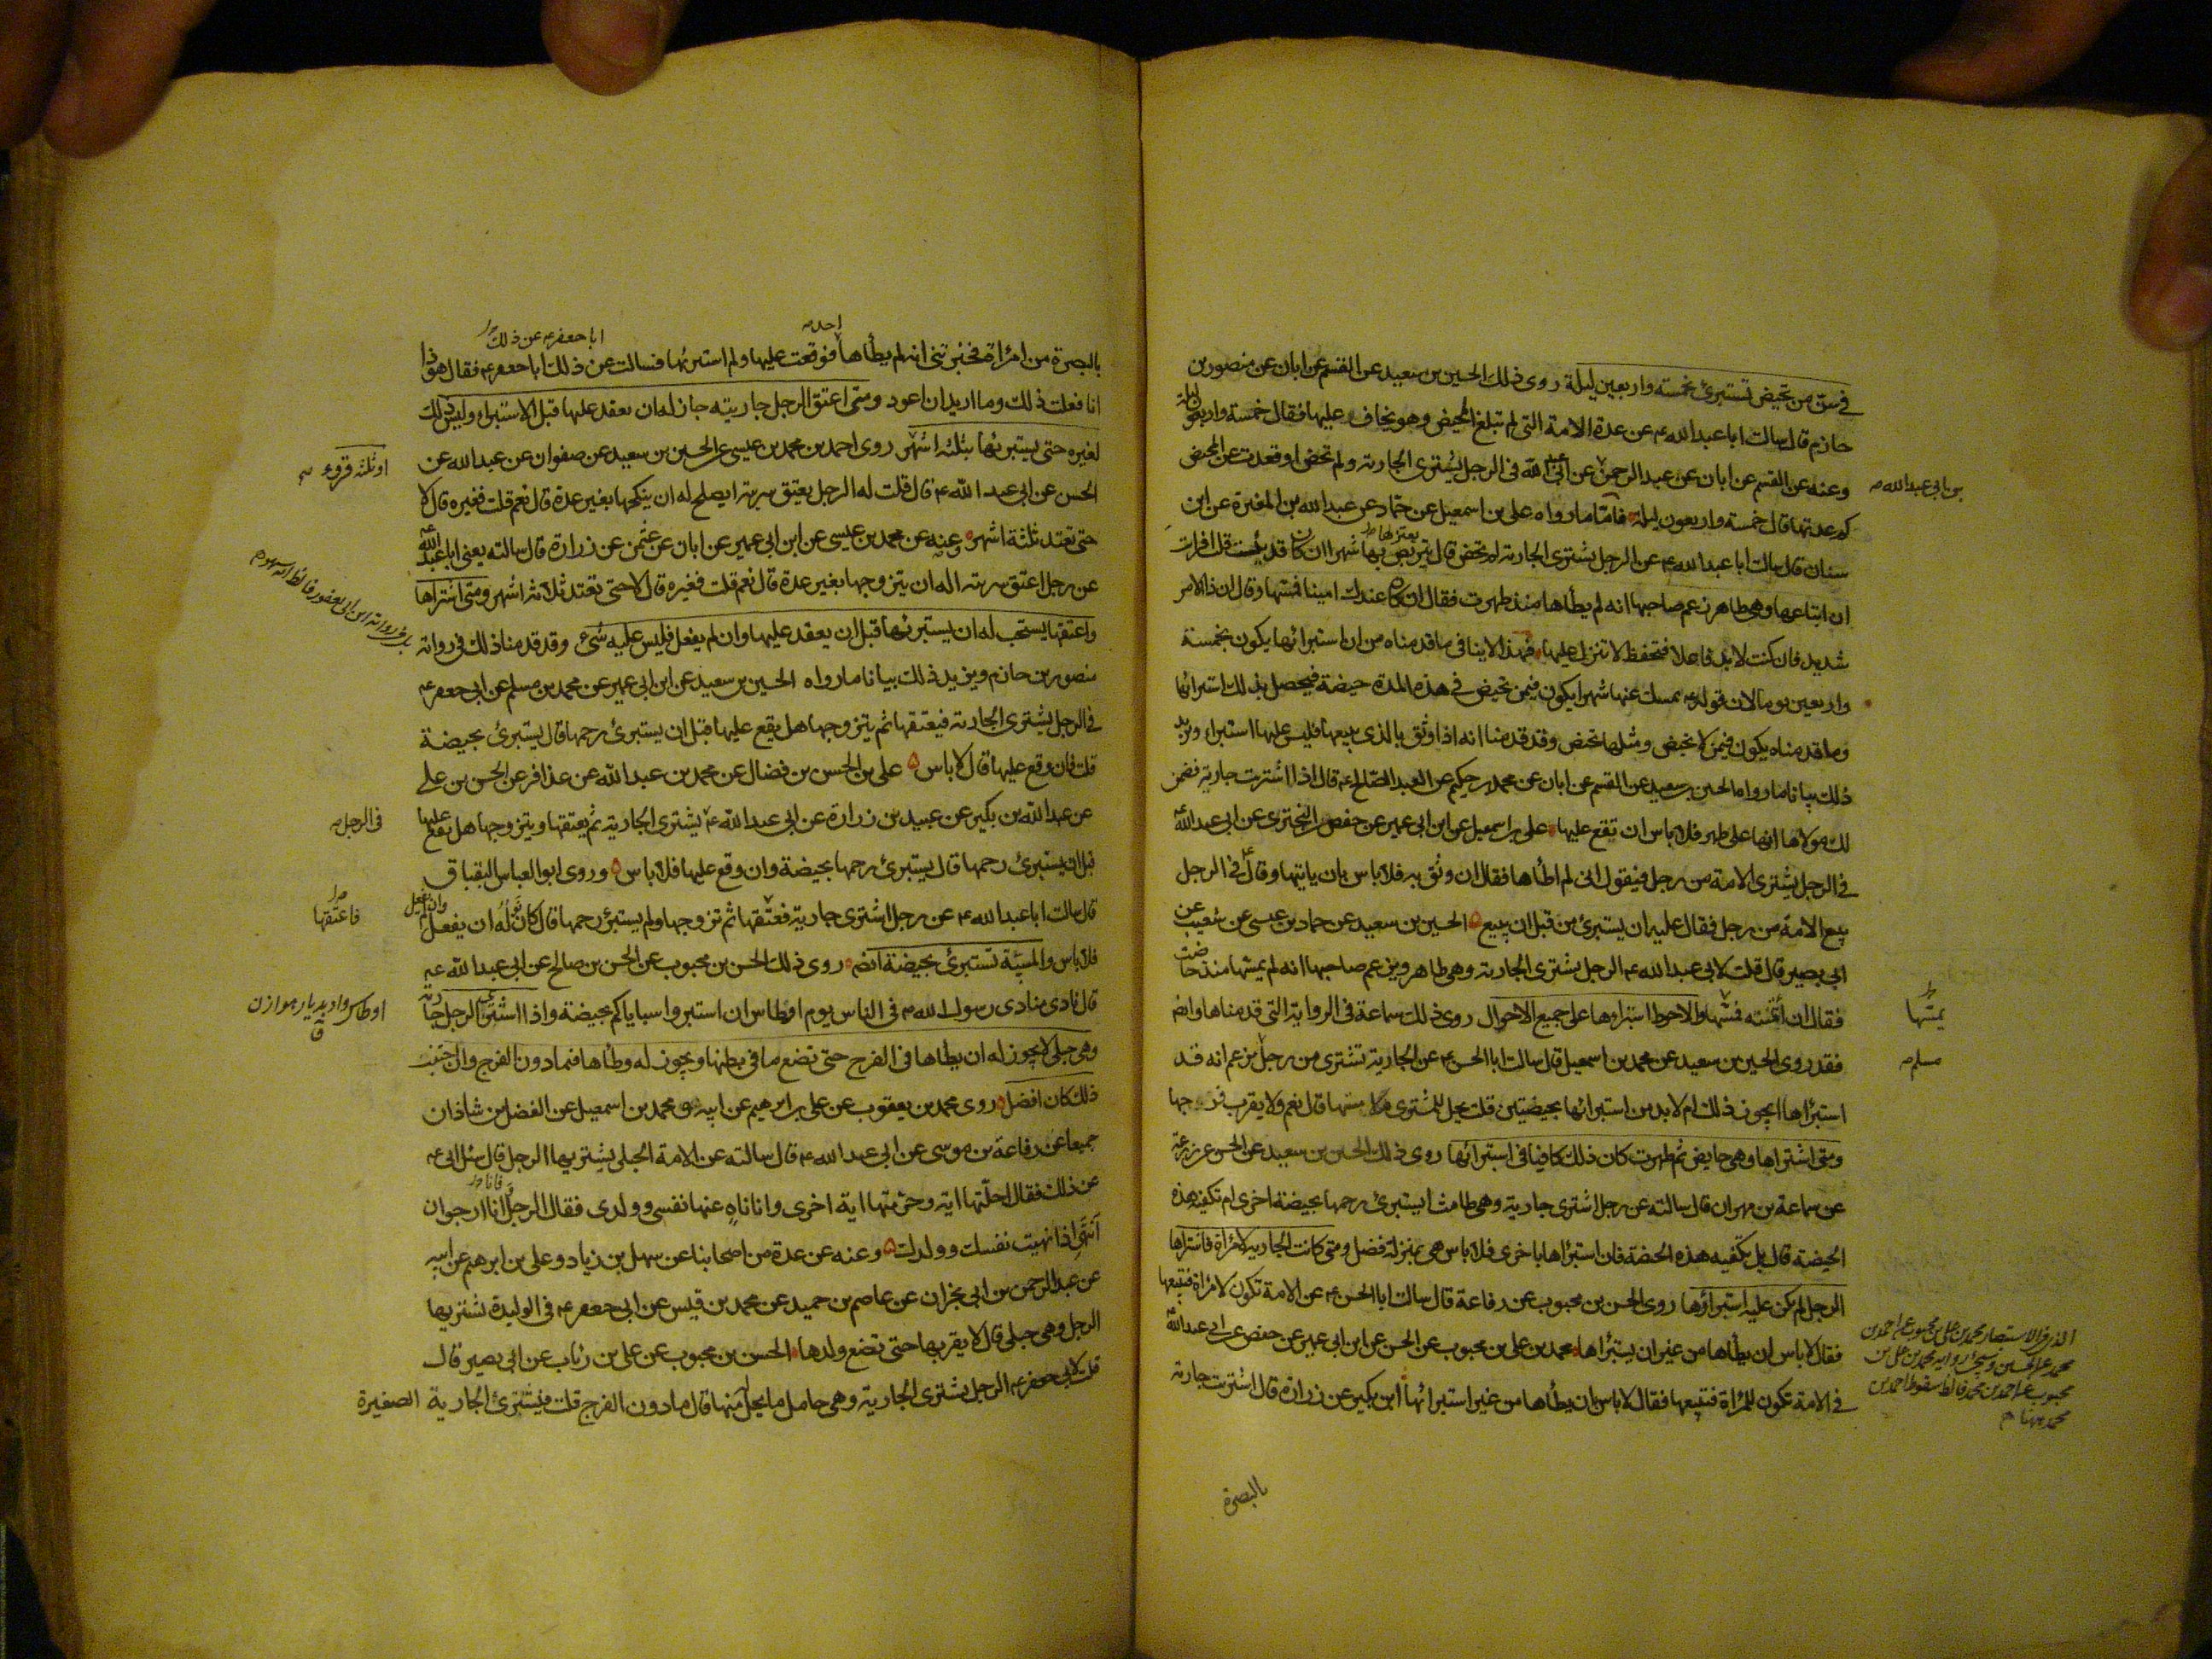 في سن من تحيض تستبرئ بخمسة واربعين ليلة روى ذلك الحسين بن سعيد عن القسم عن ابان عن منصور بن
حازم قال سالت ابا عبد الله ع عن عدة الامة التي لم تبلغ المحيض وهو يخاف عليها فقال خمسة واربعون ليلة
وعنه عن القسم عن ابان عن عبد الرحمن عن ابي عبد الله في الرجل يشترى الجارية ولم تحض او قعدت عن المحيض
بن ابي عبد الله
كم عدتها قال خمسة واربعون ليلة فاما ما رواه علي بن اسمعيل عن حماد عن عبد الله بن المغيرة عن ابن
سنان قال سالت ابا عبد الله ع عن الرجل يشترى الجارية لم تحض قال يتربص بها شهرا ان كان قد يئست قلت افرايت
يعتزلها
ان ابتاعها وهي طاهر زعم صاحبها انه لم يطأها منذ طهرت فقال ان كان عندك امينا فمسها وقال ان ذا الامر
شديد فان كنت لا بد فاعلا فتحفظ لا تنزل عليها فهذا لا ينافي ما قدمناه من ان استبرائها يكون بخمسة
واربعين يوما لان قوله ع يمسك عنها شهرا يكون فيمن تحيض في هذه المدة حيضة فيحصل بذلك استبرائها
وما قدمناه يكون فيمن لا تحيض ومثلها تحيض وقد قدمنا انه اذا وثق بالذى يبيعها فليس عليها استبراء ويزيد
ذلك بيانا ما رواه الحسين بن سعيد عن القسم عن ابان عن محمد بن حكيم عن العبد الصالح ع قال اذا اشتريت جارية فضمن
لك مولاها انها على طهر فلا باس ان تقع عليها علي بن اسمعيل عن ابن ابي عمير عن حفص بن البخترى عن ابي عبد الله ع
في الرجل يشترى الامة من رجل فيقول اني لم اطأها فقال ان وثق به فلا باس بان ياتيها وقال في الرجل
يبيع الامة من رجل فقال عليه ان يستبرئ من قبل ان يبيع الحسين بن سعيد عن حماد بن عيسى عن شعيب عن
ابي بصير قال قلت لابي عبد الله ع الرجل يشترى الجارية وهي طاهر ويزعم صاحبها انه لم يمسها منذ حاضت
فقال ان أمنته فمسها والاحوط استبراءها على جميع الاحوال روى ذلك سماعة في الرواية التي قدمناها وايضا
يمسها
فقد روى الحسين بن سعيد عن محمد بن اسمعيل قال سالت ابا الحسن ع عن الجارية تشترى من رجل يزعم انه قد
مسلم
استبرأها ايجوز ذلك ام لا بد من استبرائها بحيضتين قلت يحل للمشترى ملامستها قال نعم ولا يقرب فرجها
ومتى اشتراها وهي حايض ثم طهرت كان ذلك كافيا في استبرائها روى ذلك الحسين بن سعيد عن الحسن عن زرعة
عن سماعة بن مهران قال سالته عن رجل اشترى جارية وهي طامث ايستبرئ رحمها بحيضة اخرى ام تكفيه هذه
الحيضة قال بل تكفيه هذه الحيضة فان استبرأها باخرى فلا باس هي بمنزلة فضل ومتى كانت الجارية لامرأة فاشتراها
الرجل لم يكن عليه استبراؤها روى الحسن بن محبوب عن رفاعة قال سالت ابا الحسن ع عن الامة تكون لامرأة فتبيعها
فقال لا باس ان يطأها من غير ان يستبرأها محمد بن علي بن محبوب عن الحسن عن ابن ابي عمير عن حفص عن ابي عبد الله ع
في الامة تكون للمرأة فتبيعها فقال لا باس بان يطأها من غير استبرائها ابن بكير عن زرارة قال اشتريت جارية
الذى في الاستبصار محمد بن علي بن محبوب عن احمد بن
محمد عن الحسين
محبوب عن احمد بن محمد فالظ سقوط احمد بن
محمد هنا
بالبصرة
ابا جعفر ع عن ذلك
احد
بالبصرة من امرأة فخبرتني انه لم يطأها فوقعت عليها ولم استبرئها فسالت عن ذلك ابا جعفر ع فقال هو ذا
انا فعلت ذلك وما اريد ان اعود ومتى اعتق الرجل جاريته جاز له ان يعقد عليها قبل الاستبراء وليس ذلك
لغيره حتى يستبرئها بثلثه اشهر روى احمد بن محمد بن عيسى عن الحسين بن سعيد عن صفوان عن عبد الله عن
او ثلثة قروء
الحسن عن ابي عبد الله ع قال قلت له الرجل يعتق سريته ايصلح له ان ينكحها بغير عدة قال نعم قلت فغيره قال لا
حتى تعتد ثلثة اشهر وعنه عن محمد بن عيسى عن ابن ابي عمير عن ابان عن عثمن عن زرارة قال سالته يعني ابا عبد الله ع
عن رجل اعتق سريته اله ان يتزوجها بغير عدة قال نعم قلت فغيره قال لا حتى تعتد ثلاثة اشهر ومتى اشتراها
واعتقها يستحب له ان يستبرئها قبل ان يعقد عليها وان لم يفعل فليس عليه شئ وقد قدمنا ذلك في رواية
منصور بن حازم ويزيد ذلك بيانا ما رواه الحسين بن سعيد عن ابن ابي عمير عن محمد بن مسلم عن ابي جعفر ع
في الرجل يشترى الجارية فيعتقها ثم يتزوجها هل يقع عليها قبل ان يستبرئ رحمها قال يستبرئ بحيضة
قلت فان وقع عليها قال لا باس علي بن الحسن بن فضال عن محمد بن عبد الله عن عذافر عن الحسن بن علي
عن عبد الله بن بكير عن عبيد بن زرارة عن ابي عبد الله ع يشترى الجارية ثم يعتقها ويتزوجها هل يقع عليها
في الرجل
قبل ان يستبرئ رحمها قال يستبرئ رحمها بحيضة وان وقع عليها فلا باس وروى ابو العباس البقباق
قال سالت ابا عبد الله ع عن رجل اشترى جارية فعتقها ثم تزوجها ولم يستبرئ رحمها قال كان له ان يفعل وان لم يفعل
فاعتقها
فلا باس والمسبية تستبرئ بحيضة ايضا روى ذلك الحسن بن محبوب عن الحسن بن صالح عن ابي عبد الله ع
قال نادى منادى رسول الله ص في الناس يوم اوطاس ان استبروا سباياكم بحيضة واذا اشترى الرجل جارية
اوطاس واد بديار هوازن
ق
وهي حبلى لا يجوز له ان يطاها في الفرج حتى تضع ما في بطنها ويجوز له وطأها فيما دون الفرج وان تجنب
ذلك كان افضل روى محمد بن يعقوب عن علي بن ابرهيم عن ابيه و محمد بن اسمعيل عن الفضل بن شاذان
جميعا عن رفاعة بن موسى عن ابي عبد الله ع قال سالته عن الامة الحبلى يشتريها الرجل قال سئل ابي ع
عن ذلك فقال احلتها اية وحرمتها اية اخرى وانا ناه عنها نفسي وولدى فقال الرجل انا ارجوان
فانا
أنتهي اذا نهيت نفسك وولدك وعنه عن عدة من اصحابنا عن سهل بن زياد وعلي بن ابرهيم عن ابيه
عن عبد الرحمن بن ابي نجران عن عاصم بن حميد عن محمد بن قيس عن ابي جعفر ع في الوليدة يشتريها
الرجل وهي حبلى قال لا يقربها حتى تضع ولدها الحسن بن محبوب عن علي بن رئاب عن ابي بصير قال
قلت لابي جعفر ع الرجل يشترى الجارية وهي حامل ما يحل له منها قال ما دون الفرج قلت فيشترى الجارية الصغيرة